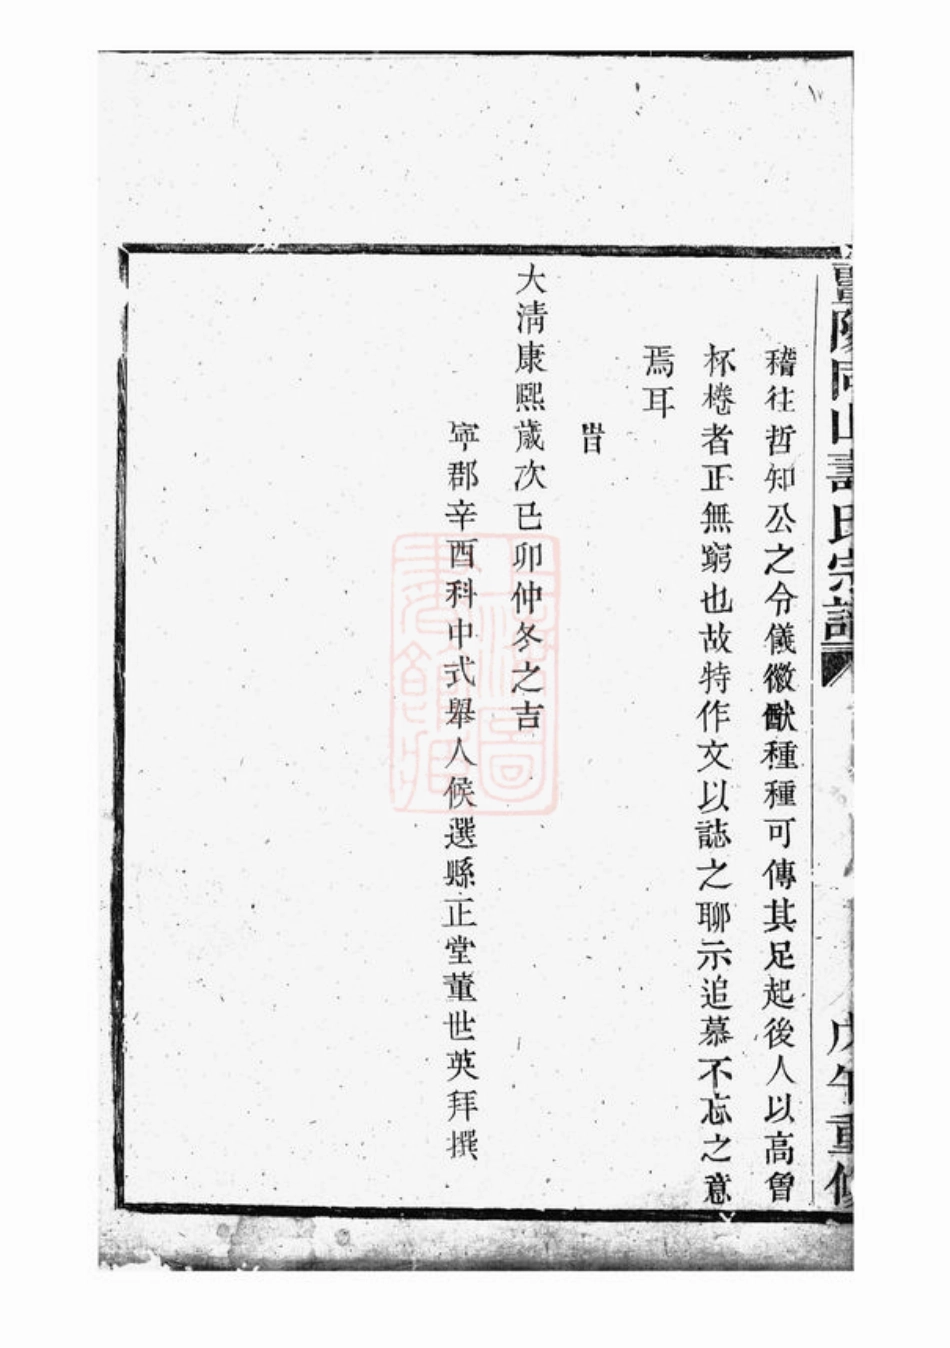 暨陽同山壽氏宗譜
戊午重修
稽往哲知公之令儀徽猷種種可傳其足起後人以高曾
杯棬者正無窮也故特作文以誌之聊示追慕不忘之意
焉耳
旹
大淸康熙歲次己卯仲冬之吉
寧郡辛酉科中式舉人候選縣正堂董世英拜撰
上海圖書館藏